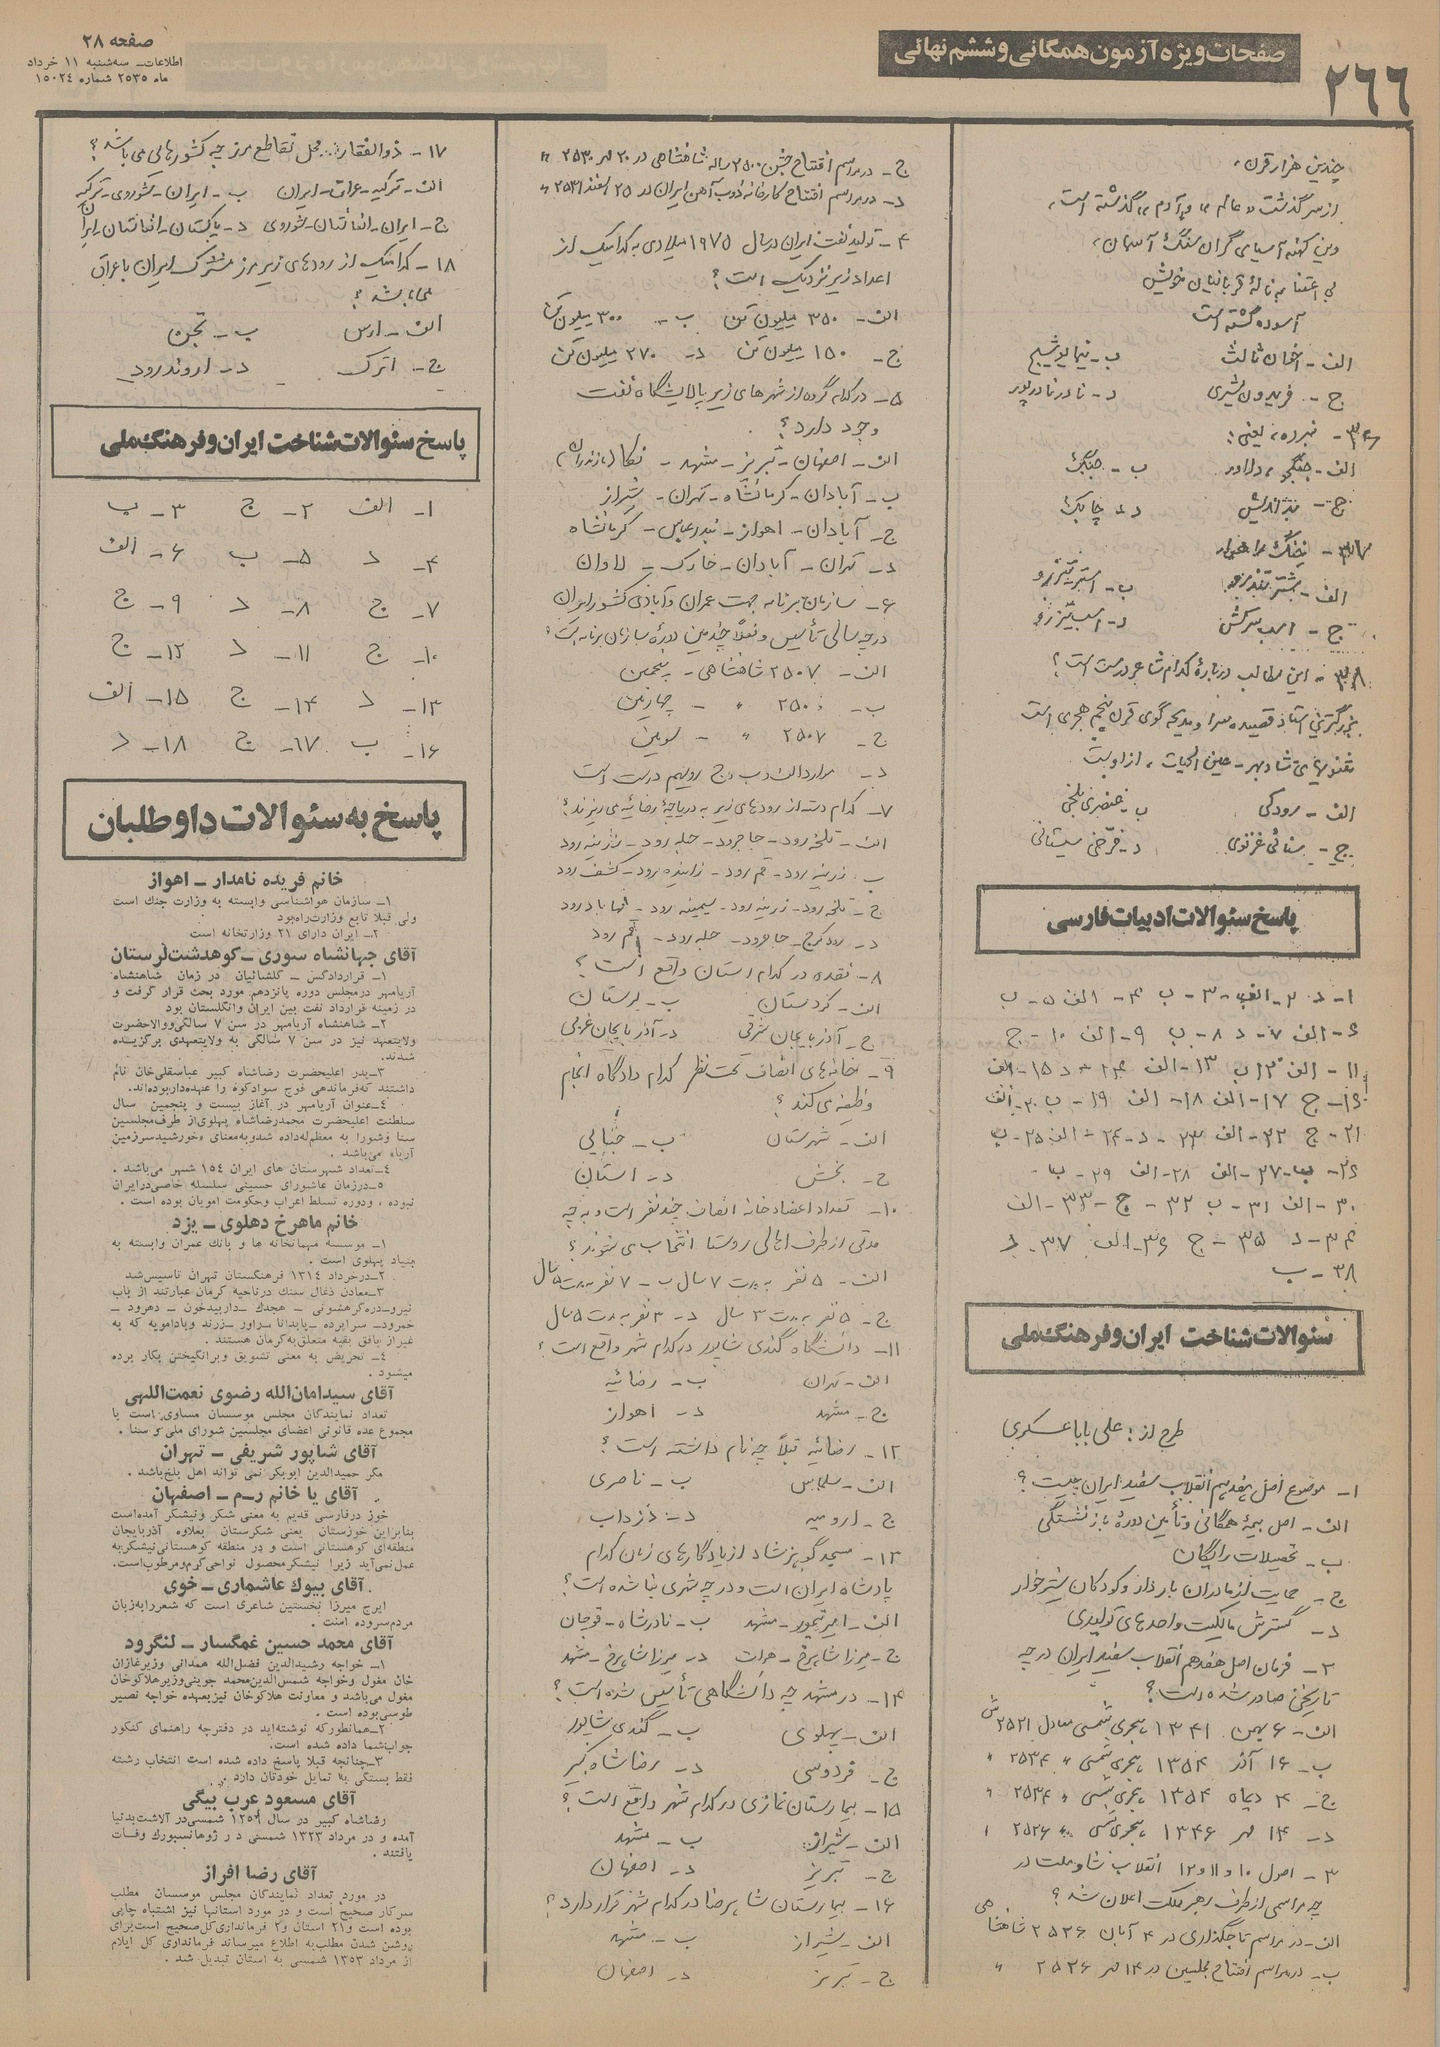 صفحات ویژه آزمون همگانی و ششم نهائی
۲۶۶
صفحه ۲۸
اطلاعات ـ سه‌شنبه ۱۱ خرداد
ماه ۲۵۳۵ شماره ۱۵۰۲۴
چندین هزار قرن،
از سرگذشت «عالم» و «آدم» گذشته است،
وین کهنه آسیای گران سنگ آسمان،
بی اعتنا به ناله قربانیان خویش
آسوده گشته است
الف ـ اخوان ثالث ب ـ نیما یوشیج
ج ـ فریدون مشیری د ـ نادر نادرپور
۳۶ ـ نبرده، یعنی:
الف ـ جنگجو، دلاور ب ـ جنگ
ج ـ د ـ چابک
۳۷ ـ
الف ـ ب ـ
ج ـ اسب سرکش د ـ
۳۸ ـ این مطالب درباره کدام شاعر درست است؟
بزرگترین استاد قصیده سرا و مدیحه گوی قرن پنجم هجری است
مثنویهای شادبهر ـ عین الحیات، از اوست
الف ـ رودکی ب ـ عنصری بلخی
ج ـ سنائی غزنوی د ـ فرخی سیستانی
پاسخ سئوالات ادبیات فارسی
۱ ـ د ۲ ـ الف ۳ ـ ب ۴ ـ الف ۵ ـ ب
۶ ـ الف ۷ ـ د ۸ ـ ب ۹ ـ الف ۱۰ ـ ج
۱۱ ـ الف ۱۲ ب ۱۳ ـ الف ۱۴ ـ د ۱۵ ـ الف
۱۶ ـ ج ۱۷ ـ الف ۱۸ ـ الف ۱۹ ـ ب ۲۰ ـ الف
۲۱ ـ ج ۲۲ ـ الف ۲۳ ـ د ـ ۲۴ ـ الف ۲۵ ـ ب
۲۶ ـ ب ـ ۲۷ ـ الف ۲۸ ـ الف ۲۹ ـ ب
۳۰ ـ الف ۳۱ ـ ب ۳۲ ـ ج ـ ۳۳ ـ الف
۳۴ ـ د ۳۵ ـ ج ۳۶ ـ الف ۳۷ ـ د
۳۸ ـ ب
سئوالات شناخت ایران و فرهنگ ملی
طرح از: علی باباعسکری
۱ ـ موضوع اصل هیفدهم انقلاب سفید ایران چیست؟
الف ـ اصل بیمه همگانی و تأمین دوره بازنشستگی
ب ـ تحصیلات رایگان
ج ـ حمایت از مادران باردار و کودکان شیرخوار
د ـ گسترش مالکیت واحدهای تولیدی
۲ ـ فرمان اصل هفدهم انقلاب سفید ایران در چه
تاریخی صادر شده است؟
الف ـ ۶ بهمن ۱۳۴۱ هجری شمسی معادل ۲۵۲۱ ش
ب ـ ۱۶ آذر ۱۳۵۴ هجری شمسی » ۲۵۳۴ »
ج ـ ۴ دیماه ۱۳۵۴ هجری شمسی » ۲۵۳۴ »
د ـ ۱۴ مهر ۱۳۴۶ هجری شمسی » ۲۵۲۶ »
۳ ـ اصول ۱۰ و ۱۱ و ۱۲ انقلاب شاه و ملت در
چه مراسمی از طرف رهبر مملکت اعلان شد؟
الف ـ در مراسم تاجگذاری در ۴ آبان ۲۵۲۶ شاهنشاهی
ب ـ در مراسم افتتاح مجلسین در ۱۴ مهر ۲۵۲۶ »
ج ـ در مراسم افتتاح جشن ۲۵۰۰ ساله شاهنشاهی در ۲۰ مهر ۲۵۳۰ »
د ـ در مراسم افتتاح کارخانه ذوب آهن ایران در ۲۵ اسفند ۲۵۳۱ »
۴ ـ تولید نفت ایران در سال ۱۹۷۵ میلادی به کدامیک از
اعداد زیر نزدیک است؟
الف ـ ۳۵۰ میلیون تن ب ـ ۳۰۰ میلیون تن
ج ـ ۱۵۰ میلیون تن د ـ ۲۷۰ میلیون تن
۵ ـ در کدام گروه از شهرهای زیر پالایشگاه نفت
وجود دارد؟
الف ـ اصفهان ـ تبریز ـ مشهد ـ نکا (مازندران)
ب ـ آبادان ـ کرمانشاه ـ تهران ـ شیراز
ج ـ آبادان ـ اهواز ـ بندرعباس ـ کرمانشاه
د ـ تهران ـ آبادان ـ خارک ـ لاوان
۶ ـ سازمان برنامه جهت عمران و آبادی کشور ایران
در چه سالی تأسیس و فعلاً چندمین دوره سازمان برنامه است؟
الف ـ ۲۵۰۷ شاهنشاهی ـ پنجمین
ب ـ ۲۵۰۰ » ـ چهارمین
ج ـ ۲۵۰۷ » ـ سومین
د ـ موارد الف و ب و ج رویهم درست است
۷ ـ کدام دسته از رودهای زیر به دریاچه رضائیه می ریزند؟
الف ـ تلخه رود ـ جاجرود ـ حبله رود ـ زرینه رود
ب ـ زرینه رود ـ قم رود ـ زاینده رود ـ کشف رود
ج ـ تلخه رود ـ زرینه رود ـ سیمینه رود ـ مهاباد رود
د ـ رود کرج ـ جاجرود ـ حبله رود ـ قم رود
۸ ـ نقده در کدام استان واقع است؟
الف ـ کردستان ب ـ لرستان
ج ـ آذربایجان شرقی د ـ آذربایجان غربی
۹ ـ خانه‌های انصاف تحت نظر کدام دادگاه انجام
وظیفه می کند؟
الف ـ شهرستان ب ـ جنائی
ج ـ بخش د ـ استان
۱۰ ـ تعداد اعضاء خانه انصاف چند نفر است و به چه
مدتی از طرف اهالی روستا انتخاب می شوند؟
الف ـ ۵ نفر به مدت ۷ سال ب ـ ۷ نفر به مدت ۵ سال
ج ـ ۵ نفر به مدت ۳ سال د ـ ۳ نفر به مدت ۵ سال
۱۱ ـ دانشگاه گندی شاپور در کدام شهر واقع است؟
الف ـ تهران ب ـ رضائیه
ج ـ مشهد د ـ اهواز
۱۲ ـ رضائیه قبلاً چه نام داشته است؟
الف ـ سلماس ب ـ ناصری
ج ـ ارومیه د ـ دزداب
۱۳ ـ مسجد گوهرشاد از یادگارهای زمان کدام
پادشاه ایران است و در چه شهری بنا شده است؟
الف ـ امیرتیمور ـ مشهد ب ـ نادرشاه ـ قوچان
ج ـ میرزا شاهرخ ـ هرات د ـ میرزا شاهرخ ـ مشهد
۱۴ ـ در مشهد چه دانشگاهی تأسیس شده است؟
الف ـ پهلوی ب ـ گندی شاپور
ج ـ فردوسی د ـ رضاشاه کبیر
۱۵ ـ بیمارستان نمازی در کدام شهر واقع است؟
الف ـ شیراز ب ـ مشهد
ج ـ تبریز د ـ اصفهان
۱۶ ـ بیمارستان شاهرضا در کدام شهر قرار دارد؟
الف ـ شیراز ب ـ مشهد
ج ـ تبریز د ـ اصفهان
۱۷ ـ ذوالفقار محل تقاطع مرز چه کشورهایی می باشد؟
الف ـ ترکیه ـ عراق ـ ایران ب ـ ایران ـ شوروی ـ ترکیه
ج ـ ایران ـ افغانستان ـ شوروی د ـ پاکستان ـ افغانستان ـ ایران
۱۸ ـ کدامیک از رودهای زیر مرز مشترک ایران با عراق
می باشد؟
الف ـ ارس ب ـ تجن
ج ـ اترک د ـ اروندرود
پاسخ سئوالات شناخت ایران و فرهنگ ملی
۱ ـ الف ۲ ـ ج ۳ ـ ب
۴ ـ د ۵ ـ ب ۶ ـ الف
۷ ـ ج ۸ ـ د ۹ ـ ج
۱۰ ـ ج ۱۱ ـ د ۱۲ ـ ج
۱۳ ـ د ۱۴ ـ ج ۱۵ ـ الف
۱۶ ـ ب ۱۷ ـ ج ۱۸ ـ د
پاسخ به سئوالات داوطلبان
خانم فریده نامدار ـ اهواز
۱ـ سازمان هواشناسی وابسته به وزارت جنگ است
ولی قبلا تابع وزارت راه بود
۲ـ ایران دارای ۲۱ وزارتخانه است
آقای جهانشاه سوری ـ کوهدشت لرستان
۱ـ قراردادگس ـ گلشائیان در زمان شاهنشاه
آریامهر در مجلس دوره پانزدهم مورد بحث قرار گرفت و
در زمینه قرارداد نفت بین ایران وانگلستان بود
۲ـ شاهنشاه آریامهر در سن ۷ سالگی ووالاحضرت
ولایتعهد نیز در سن ۷ سالگی به ولایتعهدی برگزیده
شدند.
۳ـ پدر اعلیحضرت رضاشاه کبیر عباسقلی خان نام
داشتند که فرماندهی فوج سوادکوه را عهده‌دار بوده‌اند.
۴ـ عنوان آریامهر در آغاز بیست و پنجمین سال
سلطنت اعلیحضرت محمدرضاشاه پهلوی از طرف مجلسین
سنا وشورا به معظم‌له داده شد وبه معنای «خورشید سرزمین
آریا» می باشد.
۴ـ تعداد شهرستان های ایران ۱۵۴ شهر می باشد.
۵ـ در زمان عاشورای حسینی سلسله خاصی در ایران
نبوده، ودوره تسلط اعراب وحکومت امویان بوده است.
خانم ماهرخ دهلوی ـ یزد
۱ـ موسسه مهمانخانه ها و بانک عمران وابسته به
بنیاد پهلوی است.
۲ـ در خرداد ۱۳۱۴ فرهنگستان تهران تاسیس شد
۳ـ معادن ذغال سنگ در ناحیه کرمان عبارتند از باب
نیرو ـ دره گرهشونی ـ هجدک ـ داربیدخون ـ دهرود ـ
خمرود ـ سراپرده ـ پابدانا ـ راور ـ زرند وبادامویه که به
غیر از بافق بقیه متعلق به کرمان هستند.
۴ـ تحریض به معنی تشویق وبرانگیختن بکار برده
میشود.
آقای سیدامان‌الله رضوی نعمت‌اللهی
تعداد نمایندگان مجلس موسسان مساوی است با
مجموع عده قانونی اعضای مجلسین شورای ملی و سنا.
آقای شاپور شریفی ـ تهران
مگر حمیدالدین ابوبکر نمی تواند اهل بلخ باشد.
آقای یا خانم ر ـ م ـ اصفهان
خوز درفارسی قدیم به معنی شکر ونیشکر آمده است
بنابراین خوزستان یعنی شکرستان بعلاوه آذربایجان
منطقه‌ای کوهستانی است و در منطقه کوهستانی نیشکر به
عمل نمی‌آید زیرا نیشکر محصول نواحی گرم ومرطوب است.
آقای بیوک عاشماری ـ خوی
ایرج میرزا نخستین شاعری است که شعر را به زبان
مردم سروده است.
آقای محمد حسین غمگسار ـ لنگرود
۱ـ خواجه رشیدالدین فضل‌الله همدانی وزیر غازان
خان مغول وخواجه شمس‌الدین محمد جوینی وزیر هلاکوخان
مغول می باشد و معاونت هلاکوخان نیز بعهده خواجه نصیر
طوسی بوده است.
۲ـ همانطور که نوشته‌اید در دفترچه راهنمای کنکور
جواب شما داده شده است.
۳ـ چنانچه قبلا پاسخ داده شده است انتخاب رشته
فقط بستگی به تمایل خودتان دارد.
آقای مسعود عرب بیگی
رضاشاه کبیر در سال ۱۲۵۶ شمسی در آلاشت بدنیا
آمده و در مرداد ۱۳۲۳ شمسی در ژوهانسبورک وفات
یافتند.
آقای رضا افراز
در مورد تعداد نمایندگان مجلس موسسان مطلب
سرکار صحیح است و در مورد استانها نیز اشتباه چاپی
بوده است و ۲۱ استان و ۲ فرمانداری کل صحیح است برای
روشن شدن مطلب به اطلاع میرساند فرمانداری کل ایلام
از مرداد ۱۳۵۳ شمسی به استان تبدیل شد.